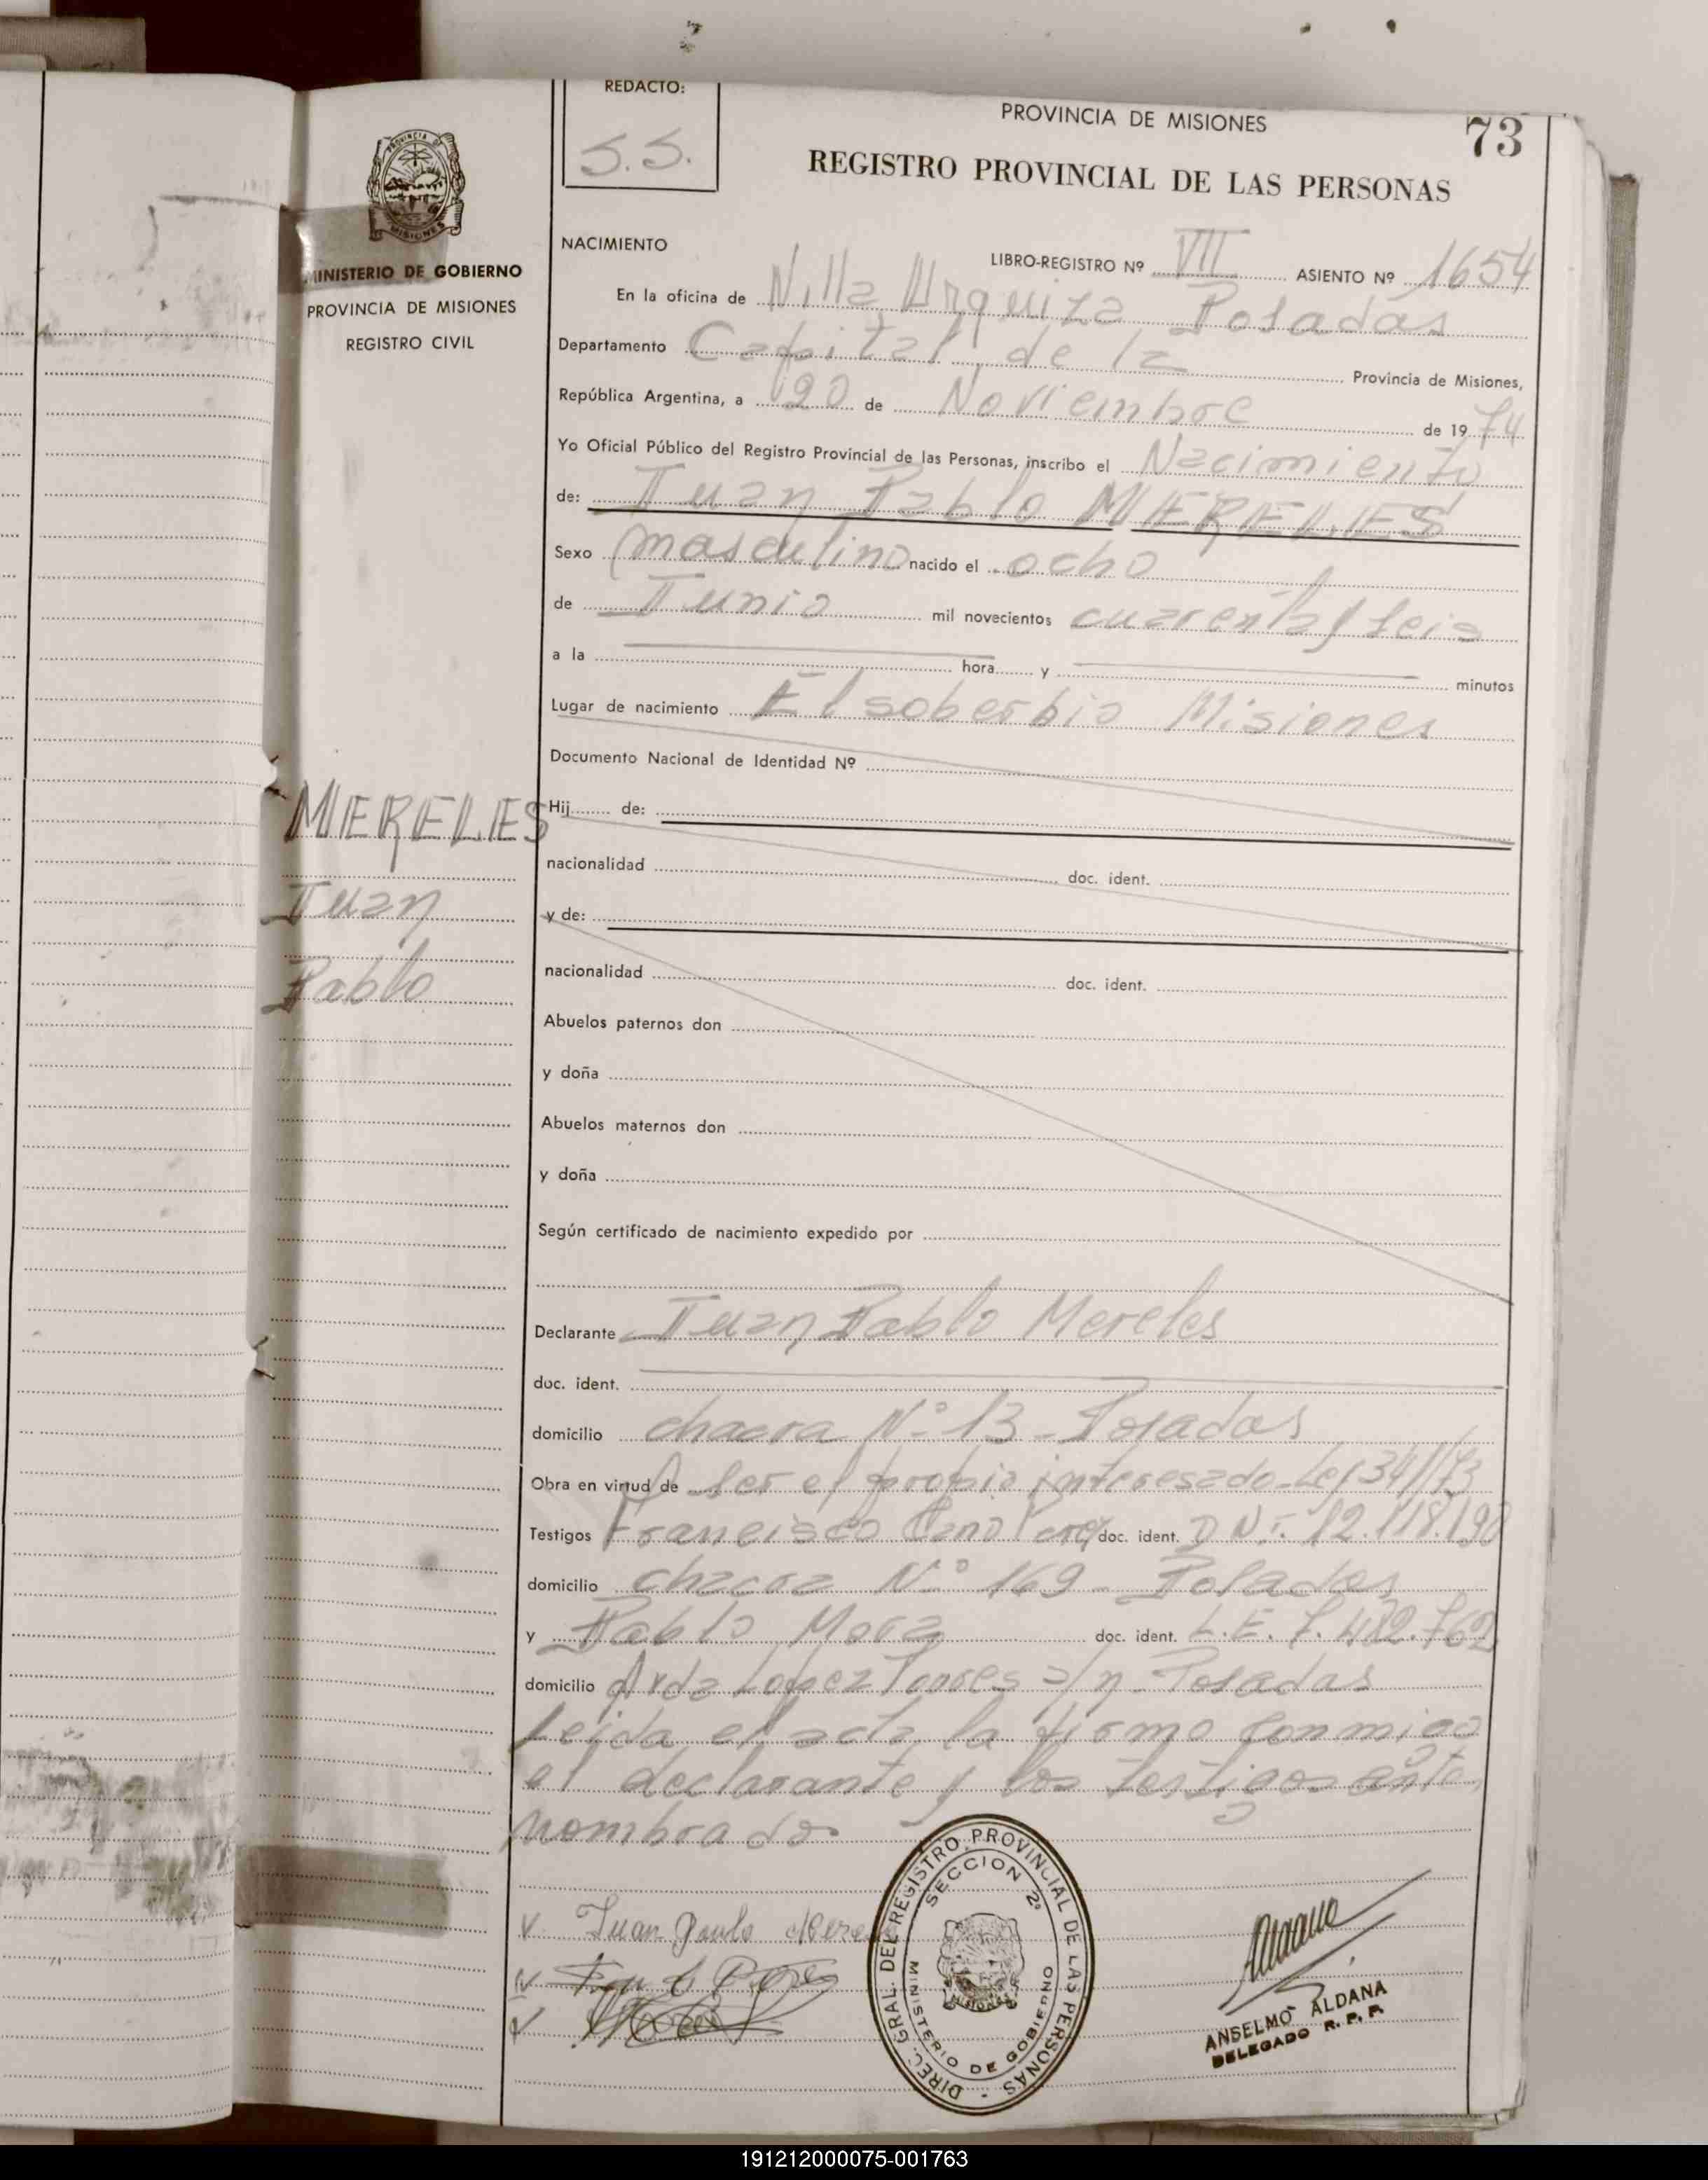 REDACTO:
S.S.
PROVINCIA DE MISIONES
73
REGISTRO PROVINCIAL DE LAS PERSONAS
PROVINCIA DE
MISIONES
MINISTERIO DE GOBIERNO
PROVINCIA DE MISIONES
REGISTRO CIVIL
MERELES
Juan
Pablo
NACIMIENTO
LIBRO-REGISTRO Nº VII ASIENTO Nº 1654
En la oficina de Villa Urquiza Posadas
Departamento Capital de la Provincia de Misiones,
República Argentina, a 20 de Noviembre de 1974
Yo Oficial Público del Registro Provincial de las Personas, inscribo el Nacimiento
de: Juan Pablo MERELES
Sexo masculino nacido el ocho
de Junio mil novecientos cuarenta y seis
a la hora y minutos
Lugar de nacimiento El soberbio Misiones
Documento Nacional de Identidad Nº
Hij de:
nacionalidad doc. ident.
y de:
nacionalidad doc. ident.
Abuelos paternos don
y doña
Abuelos maternos don
y doña
Según certificado de nacimiento expedido por
Declarante Juan Pablo Mereles
doc. ident.
domicilio chacra Nº 13 - Posadas
Obra en virtud de ser el propio interesado - Ley 341/73
Testigos Francisco doc. ident. D.N.I. 12.118.190
domicilio chacra Nº 169 - Posadas
y Pablo Mora doc. ident. L.E. 7.482.762
domicilio Avda Lopez Torres s/n - Posadas
Leida el acta la firmo conmigo
el declarante y los testigos ante
nombrado
Juan Paulo Merele
DIREC. GRAL. DEL REGISTRO PROVINCIAL DE LAS PERSONAS -
SECCION 2ª
MISIONES
MINISTERIO DE GOBIERNO
ANSELMO ALDANA
DELEGADO R. P. P.
191212000075-001763